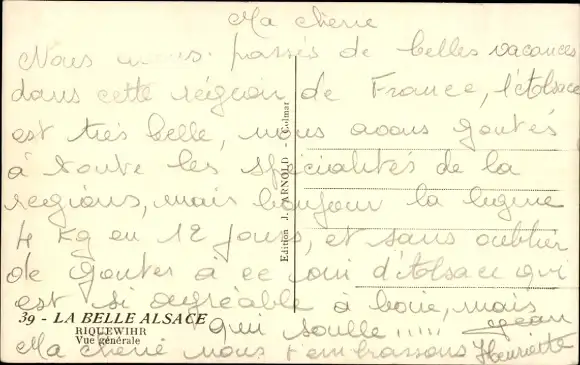 Ma cherie
Nous avons passés de belles vacances
dans cette région de France, l'Alsace
est très belle, nous avons goutés
à toute les spécialités de la
regions, mais bonjour la ligne
4 Kg en 12 jours, et sans oublier
de gouter à ce vin d'Alsace qui
est si agréable à boire, mais
qui soulle !!!!!
Jean
Ma cherie nous t'embrassons Henriette
Edition J. ARNOLD - Colmar
39 - LA BELLE ALSACE
RIQUEWIHR
Vue générale